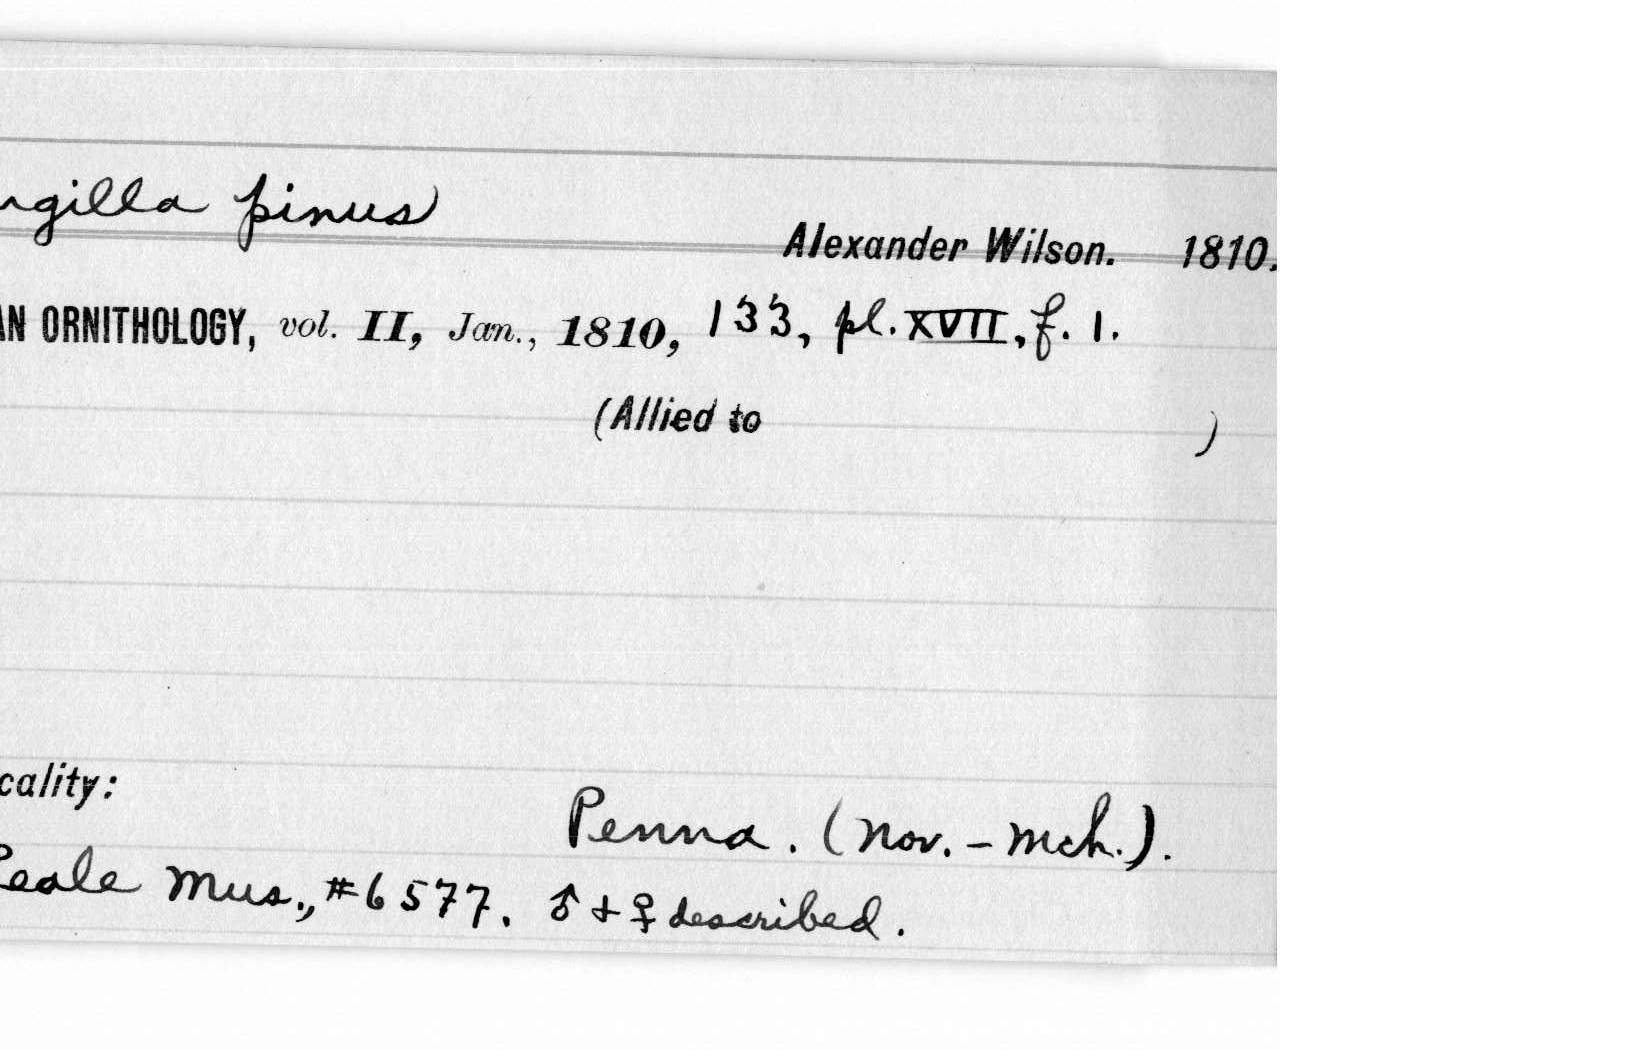 ngilla pinus
Alexander Wilson. 1810.
AN ORNITHOLOGY, vol. II, Jan., 1810, 133, pl. XVII, f. 1.
(Allied to )
cality:
Penna. (Nov. - Mch.).
Peale Mus., #6577. ♂ + ♀ described.